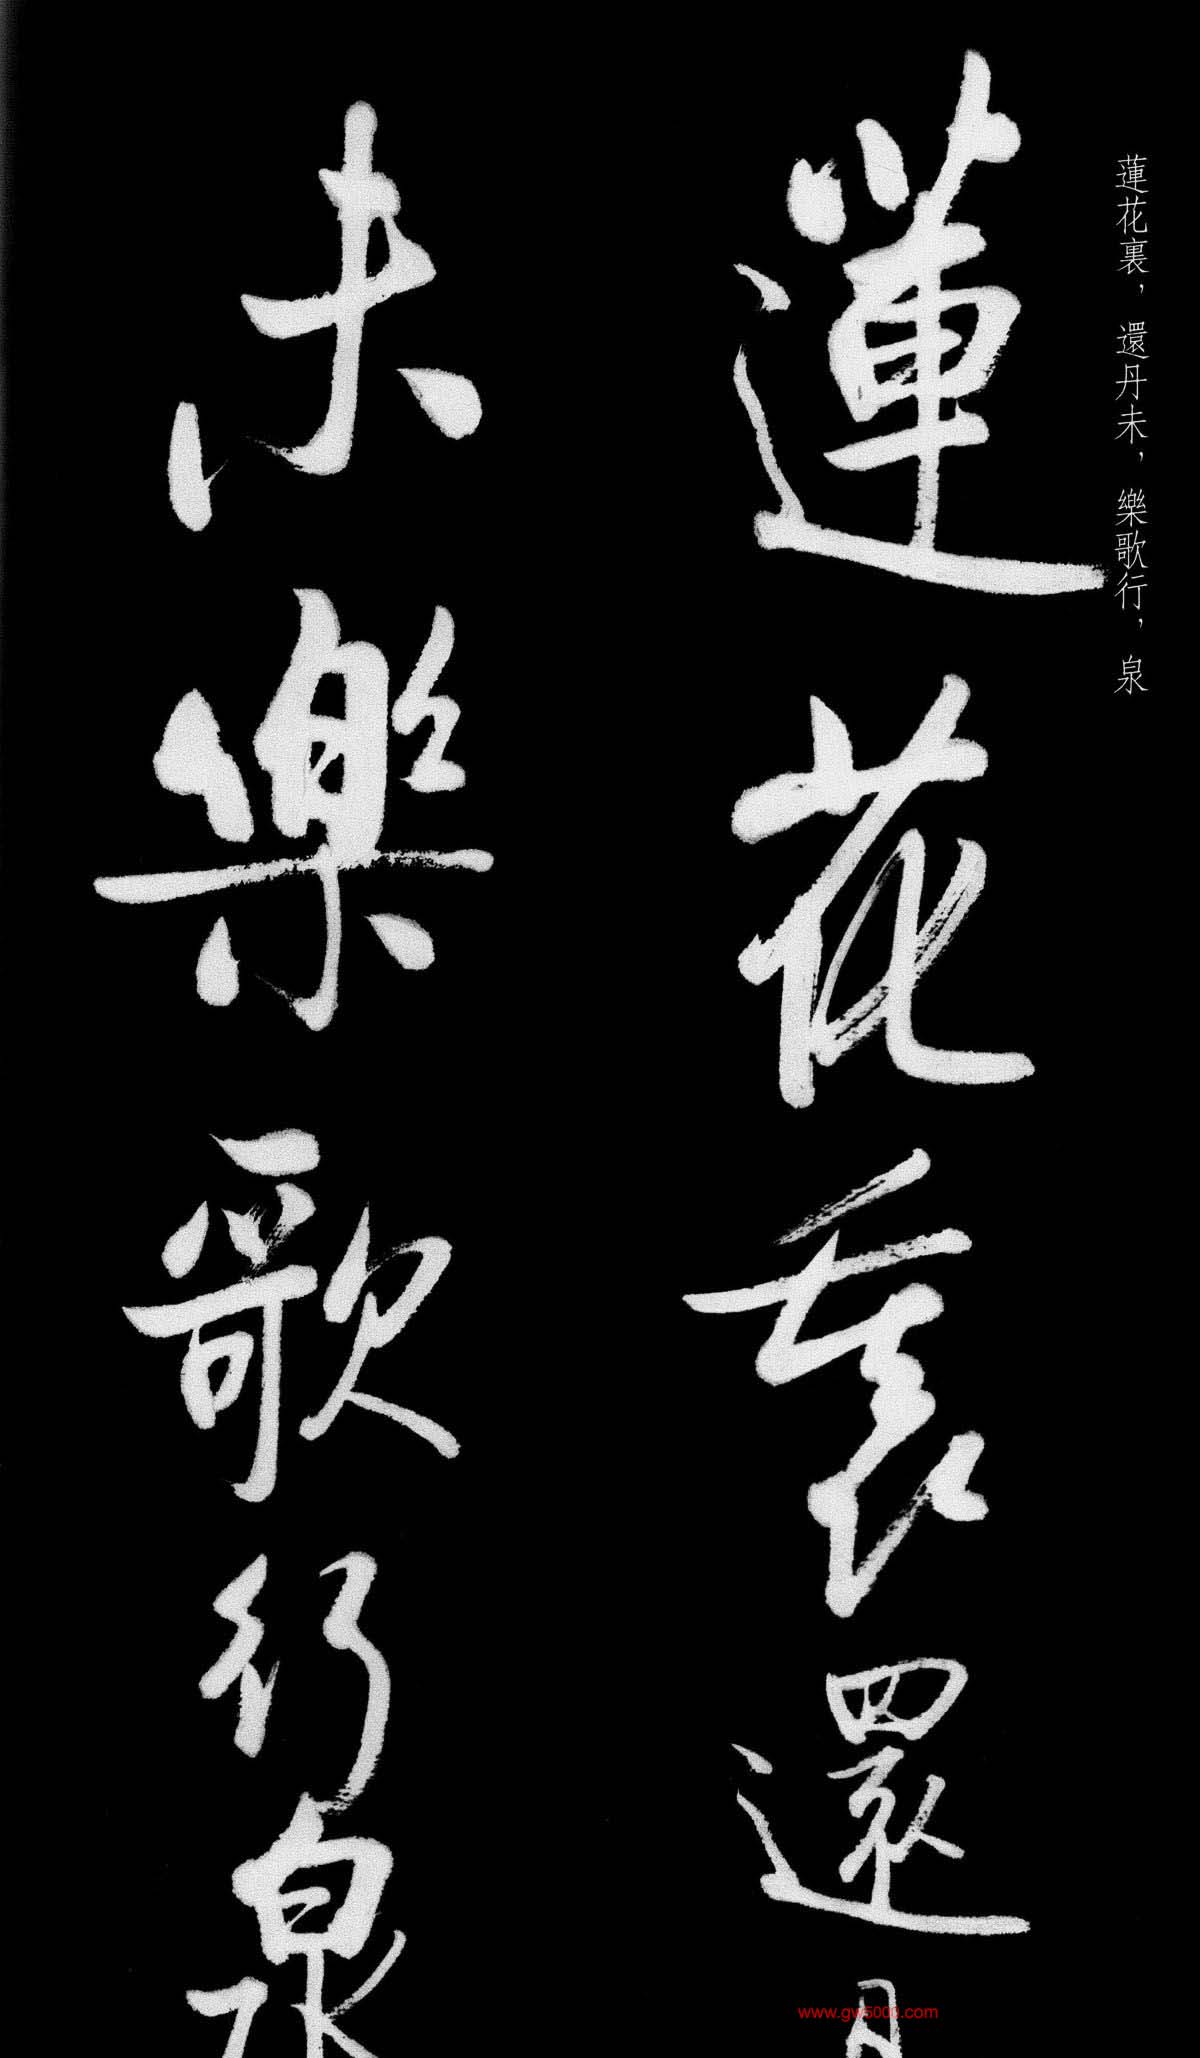 蓮花裏，還丹未，樂歌行，泉
蓮花裏還丹
未樂歌行泉
www.gw5000.com